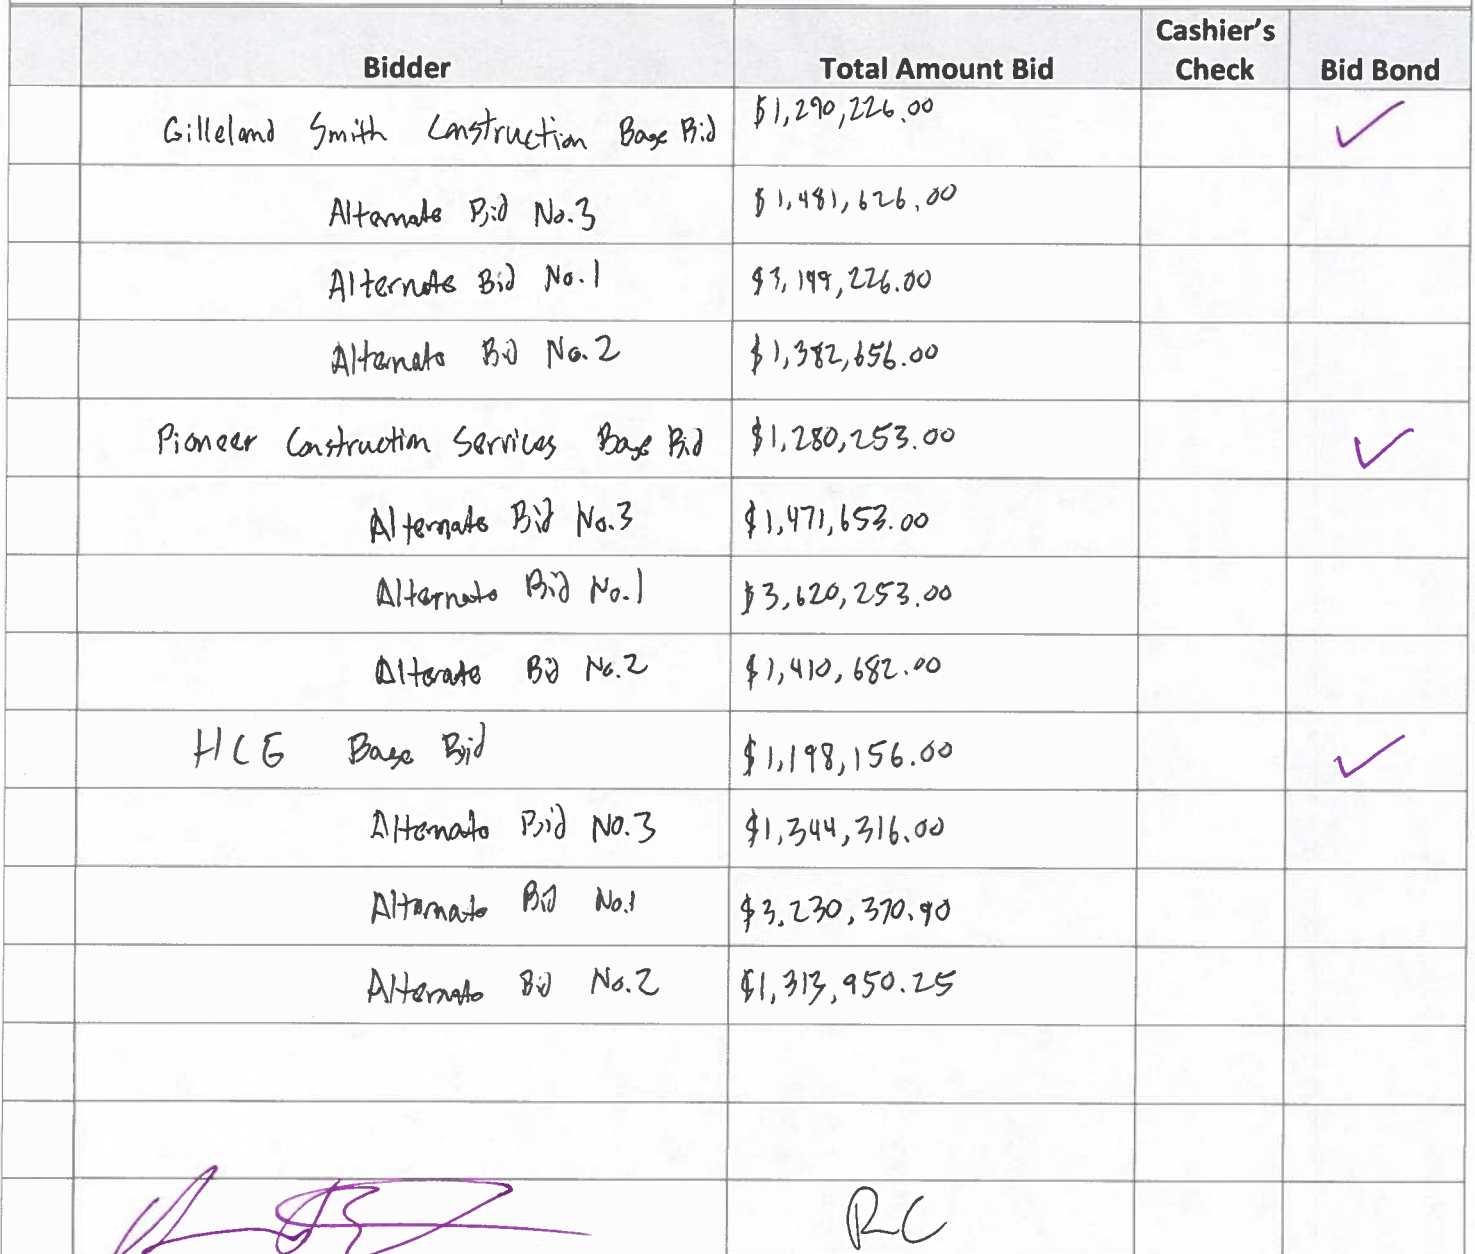 Bidder Total Amount Bid Cashier's Check Bid Bond
Gilleland Smith Construction Base Bid $1,290,226.00
Alternate Bid No.3 $1,481,626.00
Alternate Bid No.1 $3,199,226.00
Alternate Bid No.2 $1,382,656.00
Pioneer Construction Services Base Bid $1,280,253.00
Alternate Bid No.3 $1,471,653.00
Alternate Bid No.1 $3,620,253.00
Alternate Bid No.2 $1,410,682.00
HCE Base Bid $1,198,156.00
Alternate Bid No.3 $1,344,316.00
Alternate Bid No.1 $3,230,370.90
Alternate Bid No.2 $1,313,950.25
RC